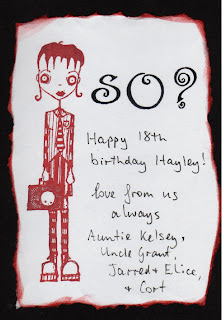 SO?
Happy 18th
birthday Hayley!
love from us
always
Auntie Kelsey,
Uncle Grant,
Jarred & Elice,
& Cort